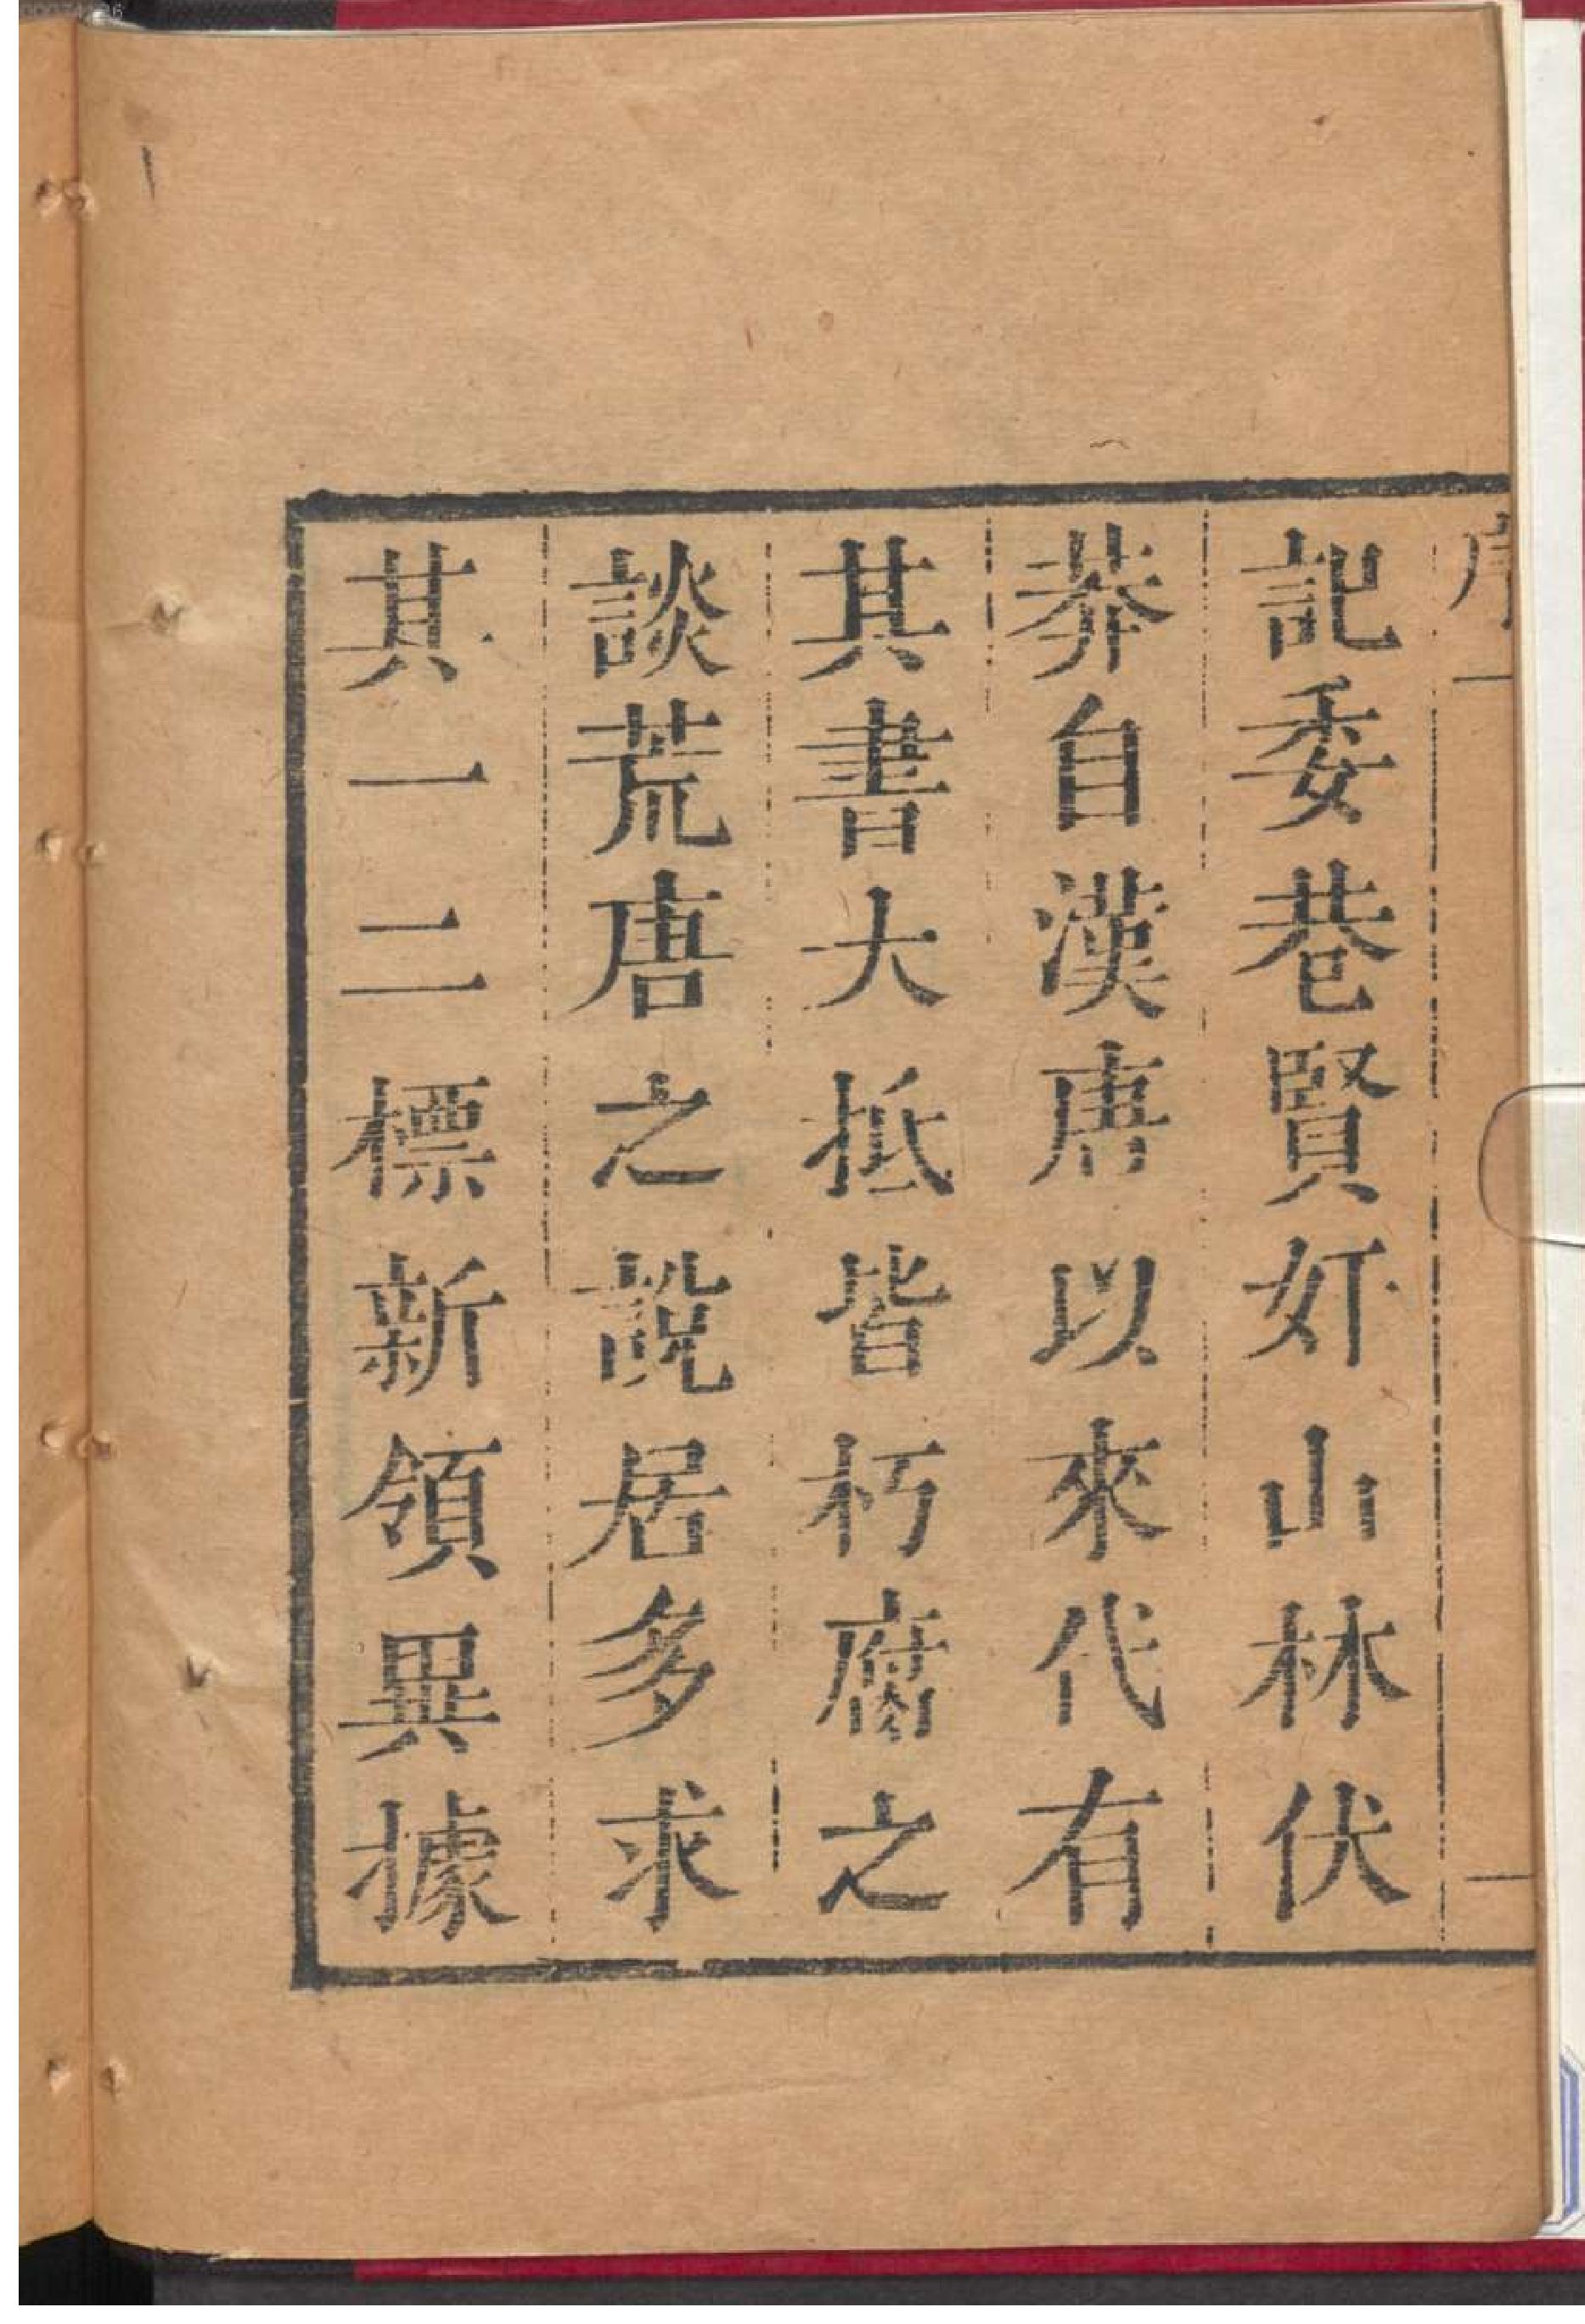 序
一
記委巷賢奸山林伏
莽自漢唐以來代有
其書大抵皆朽腐之
談荒唐之說居多求
其一二標新領異據